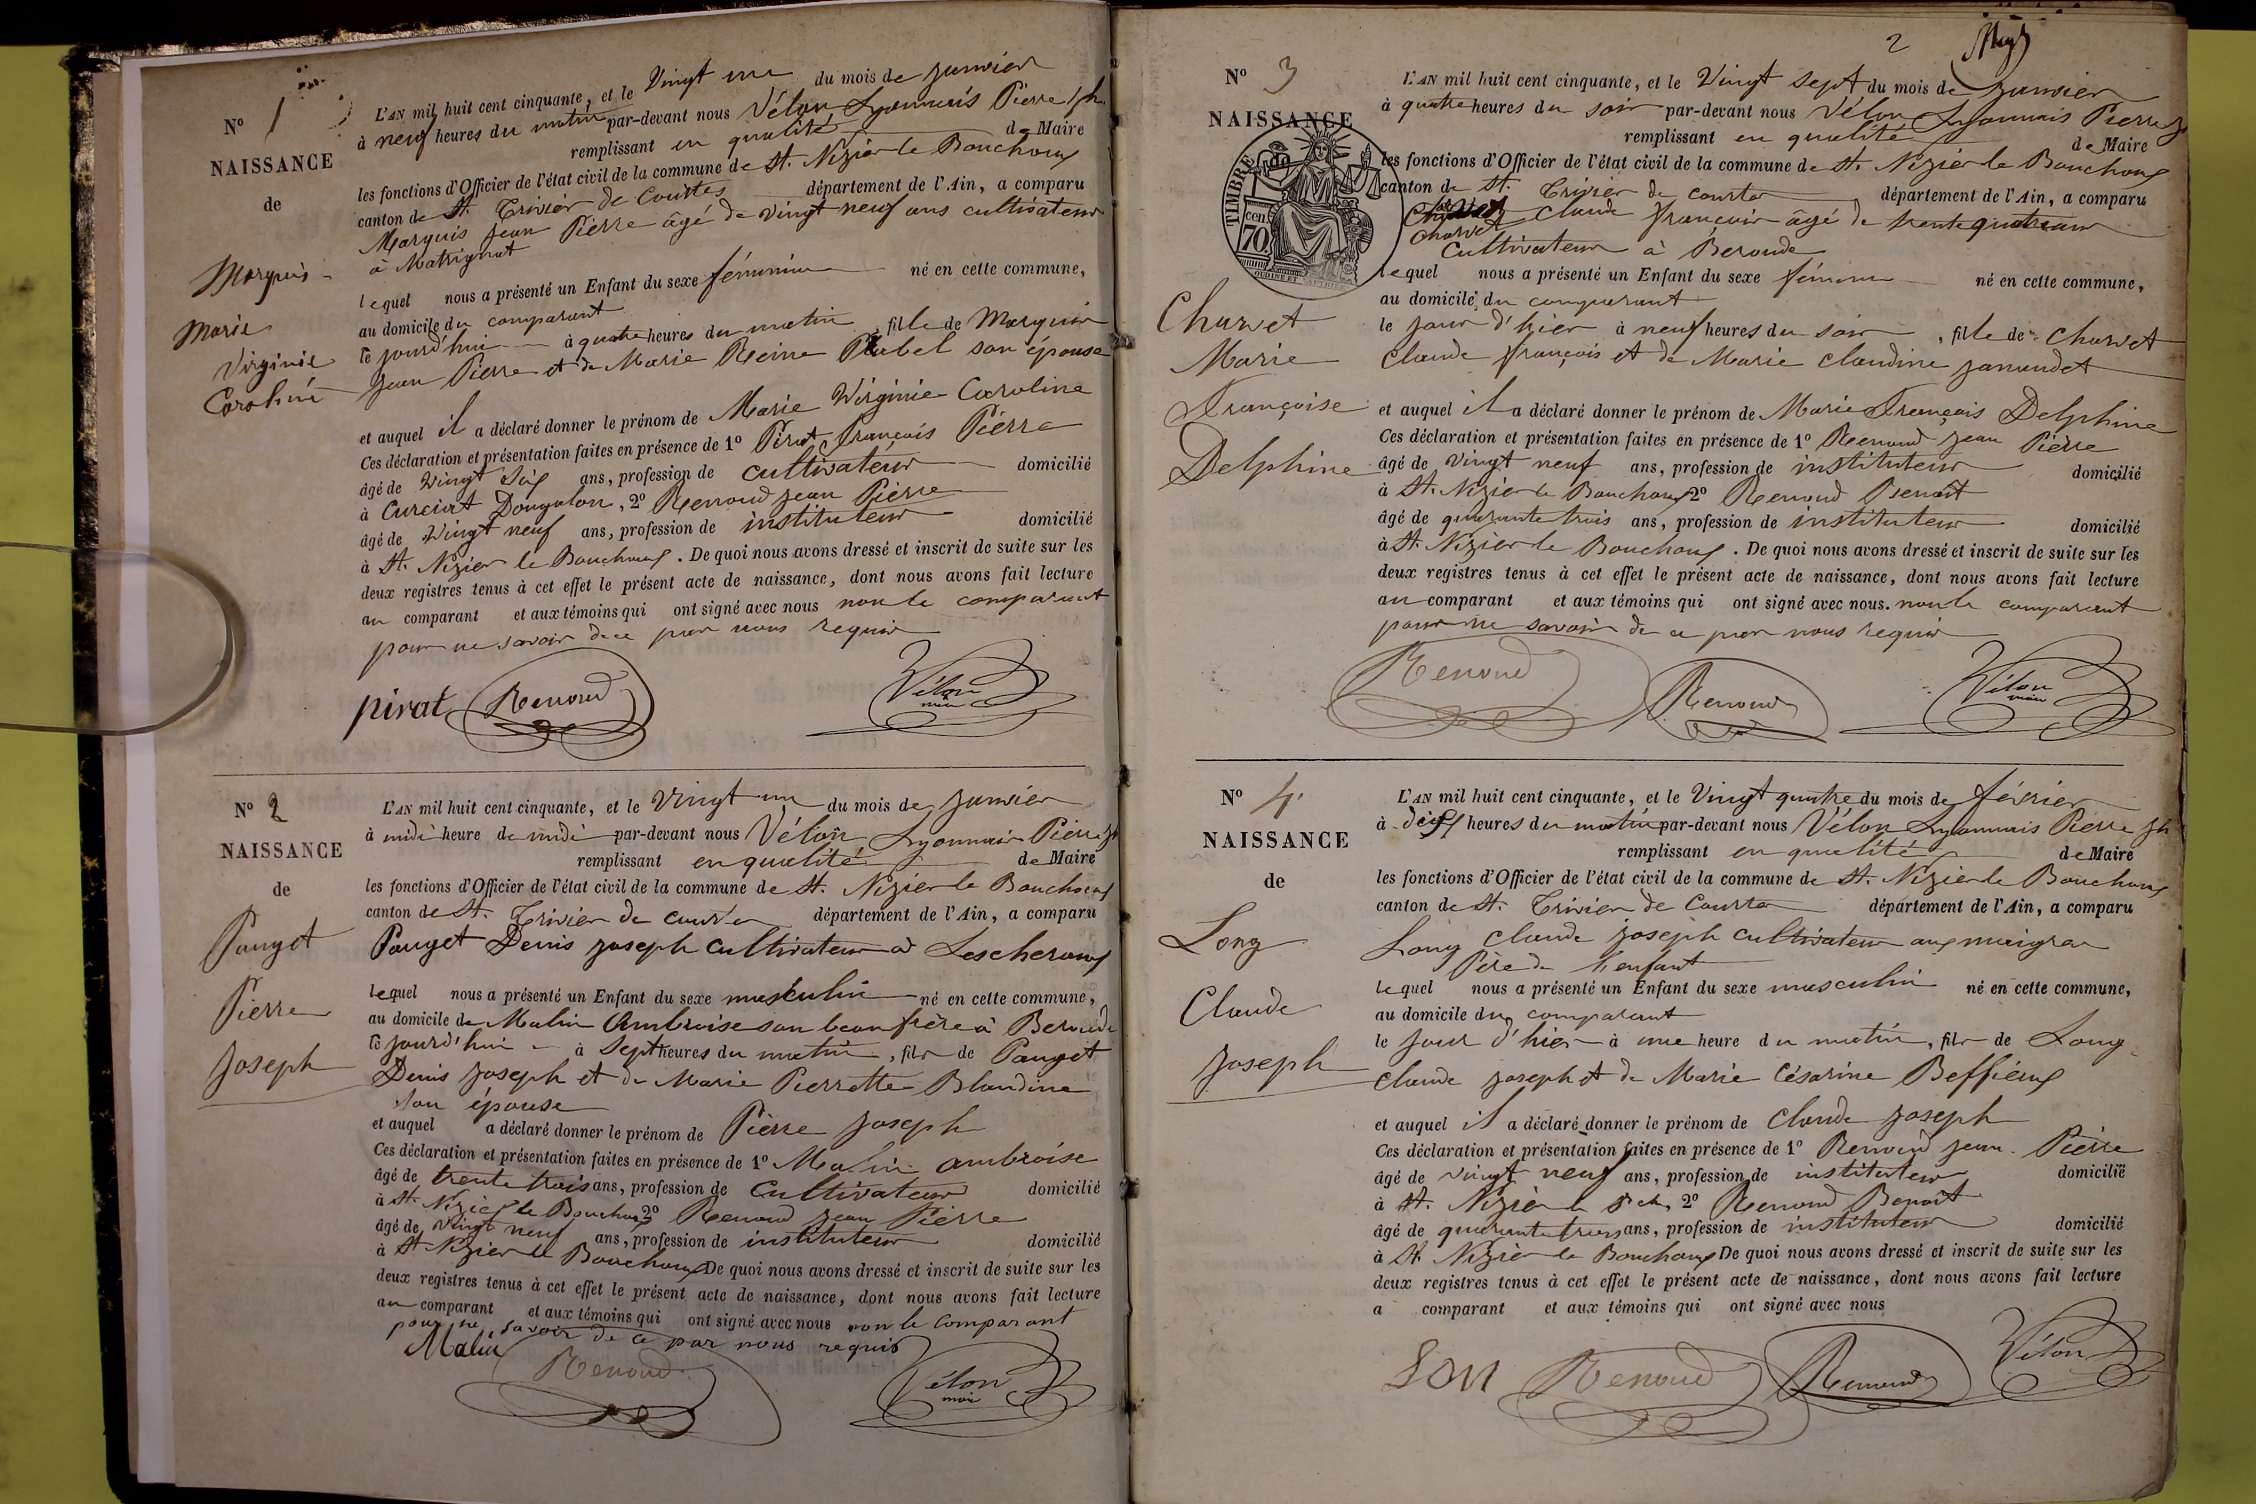 N° 1
NAISSANCE
de
Marquis
Marie
Virginie
Caroline
L'AN mil huit cent cinquante, et le Vingt un du mois de janvier
à neuf heures du matin par-devant nous Vélon Lyonnais Pierre Jh
remplissant en qualité de Maire
les fonctions d'Officier de l'état civil de la commune de St. Nizier le Bouchoux
canton de St. Trivier de Courtes département de l'Ain, a comparu
Marquis Jean Pierre âgé de vingt neuf ans cultivateur
à Matrignat
lequel nous a présenté un Enfant du sexe féminin né en cette commune,
au domicile du comparant
le jourd'hui à quatre heures du matin, fille de Marquis
Jean Pierre et de Marie Reine Rabel son épouse
et auquel il a déclaré donner le prénom de Marie Virginie Caroline
Ces déclaration et présentation faites en présence de 1° Pirat François Pierre
âgé de Vingt six ans, profession de cultivateur domicilié
à Curciat Dongalon, 2° Renoud Jean Pierre
âgé de Vingt neuf ans, profession de instituteur domicilié
à St. Nizier le Bouchoux. De quoi nous avons dressé et inscrit de suite sur les
deux registres tenus à cet effet le présent acte de naissance, dont nous avons fait lecture
au comparant et aux témoins qui ont signé avec nous non le comparant
pour ne savoir de ce par nous requis
pirat Renoud Vélon
maire
N° 2
NAISSANCE
de
Pauget
Pierre
Joseph
L'AN mil huit cent cinquante, et le Vingt un du mois de janvier
à midi heure de midi par-devant nous Vélon Lyonnais Pierre Jh
remplissant en qualité de Maire
les fonctions d'Officier de l'état civil de la commune de St. Nizier le Bouchoux
canton de St. Trivier de Courtes département de l'Ain, a comparu
Pauget Denis Joseph Cultivateur à Lescheroux
lequel nous a présenté un Enfant du sexe masculin né en cette commune,
au domicile de Malin Ambroise son beau frère à Beroude
le jourd'hui à Sept heures du matin, fils de Pauget
Denis Joseph et de Marie Pierrette Blandine
son épouse
et auquel a déclaré donner le prénom de Pierre Joseph
Ces déclaration et présentation faites en présence de 1° Malin ambroise
âgé de trente trois ans, profession de Cultivateur domicilié
à St. Nizier le Bouchoux 2° Renoud Jean Pierre
âgé de vingt neuf ans, profession de instituteur domicilié
à St Nizier le Bouchoux De quoi nous avons dressé et inscrit de suite sur les
deux registres tenus à cet effet le présent acte de naissance, dont nous avons fait lecture
au comparant et aux témoins qui ont signé avec nous non le comparant
pour ne savoir de ce par nous requis
Malin Renoud Vélon
maire
2
N° 3
NAISSANCE
TIMBRE
cen 70
Charvet
Marie
Françoise
Delphine
L'AN mil huit cent cinquante, et le Vingt sept du mois de janvier
à quatre heures du soir par-devant nous Vélon Lyonnais Pierre Jh
remplissant en qualité de Maire
les fonctions d'Officier de l'état civil de la commune de St. Nizier le Bouchoux
canton de St. Trivier de courtes département de l'Ain, a comparu
Charvet Claude françois âgé de trente quatre ans
Cultivateur à Beroude
lequel nous a présenté un Enfant du sexe féminin né en cette commune,
au domicile du comparant
le jour d'hier à neuf heures du soir, fille de Charvet
Claude françois et de Marie claudine Janaudet
et auquel il a déclaré donner le prénom de Marie François Delphine
Ces déclaration et présentation faites en présence de 1° Renoud Jean Pierre
âgé de vingt neuf ans, profession de instituteur domicilié
à St. Nizier le Bouchoux 2° Renoud Benoit
âgé de quarante trois ans, profession de instituteur domicilié
à St. Nizier le Bouchoux. De quoi nous avons dressé et inscrit de suite sur les
deux registres tenus à cet effet le présent acte de naissance, dont nous avons fait lecture
au comparant et aux témoins qui ont signé avec nous. non le comparant
pour ne savoir de ce par nous requis
Renoud Renoud Vélon
maire
N° 4
NAISSANCE
de
Long
Claude
Joseph
L'AN mil huit cent cinquante, et le Vingt quatre du mois de février
à dix heures du matin par-devant nous Vélon Lyonnais Pierre Jh
remplissant en qualité de Maire
les fonctions d'Officier de l'état civil de la commune de St. Nizier le Bouchoux
canton de St. Trivier de Courtes département de l'Ain, a comparu
Long Claude Joseph cultivateur aux
Père de l'enfant
lequel nous a présenté un Enfant du sexe masculin né en cette commune,
au domicile du comparant
le jour d'hier à une heure du matin, fils de Long
Claude Joseph et de Marie Césarine Beffieux
et auquel il a déclaré donner le prénom de Claude Joseph
Ces déclaration et présentation faites en présence de 1° Renoud Jean Pierre
âgé de vingt neuf ans, profession de instituteur domicilié
à St. Nizier le Bch, 2° Renoud Benoit
âgé de quarante trois ans, profession de instituteur domicilié
à St. Nizier le Bouchoux De quoi nous avons dressé et inscrit de suite sur les
deux registres tenus à cet effet le présent acte de naissance, dont nous avons fait lecture
a comparant et aux témoins qui ont signé avec nous
Lon Renoud Renoud Vélon